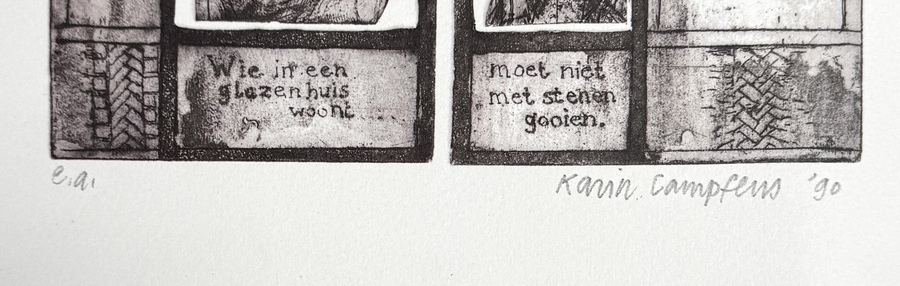 Wie in een
glazenhuis
woont....
moet niet
met stenen
gooien.
e.a.
Karin Campfens '90